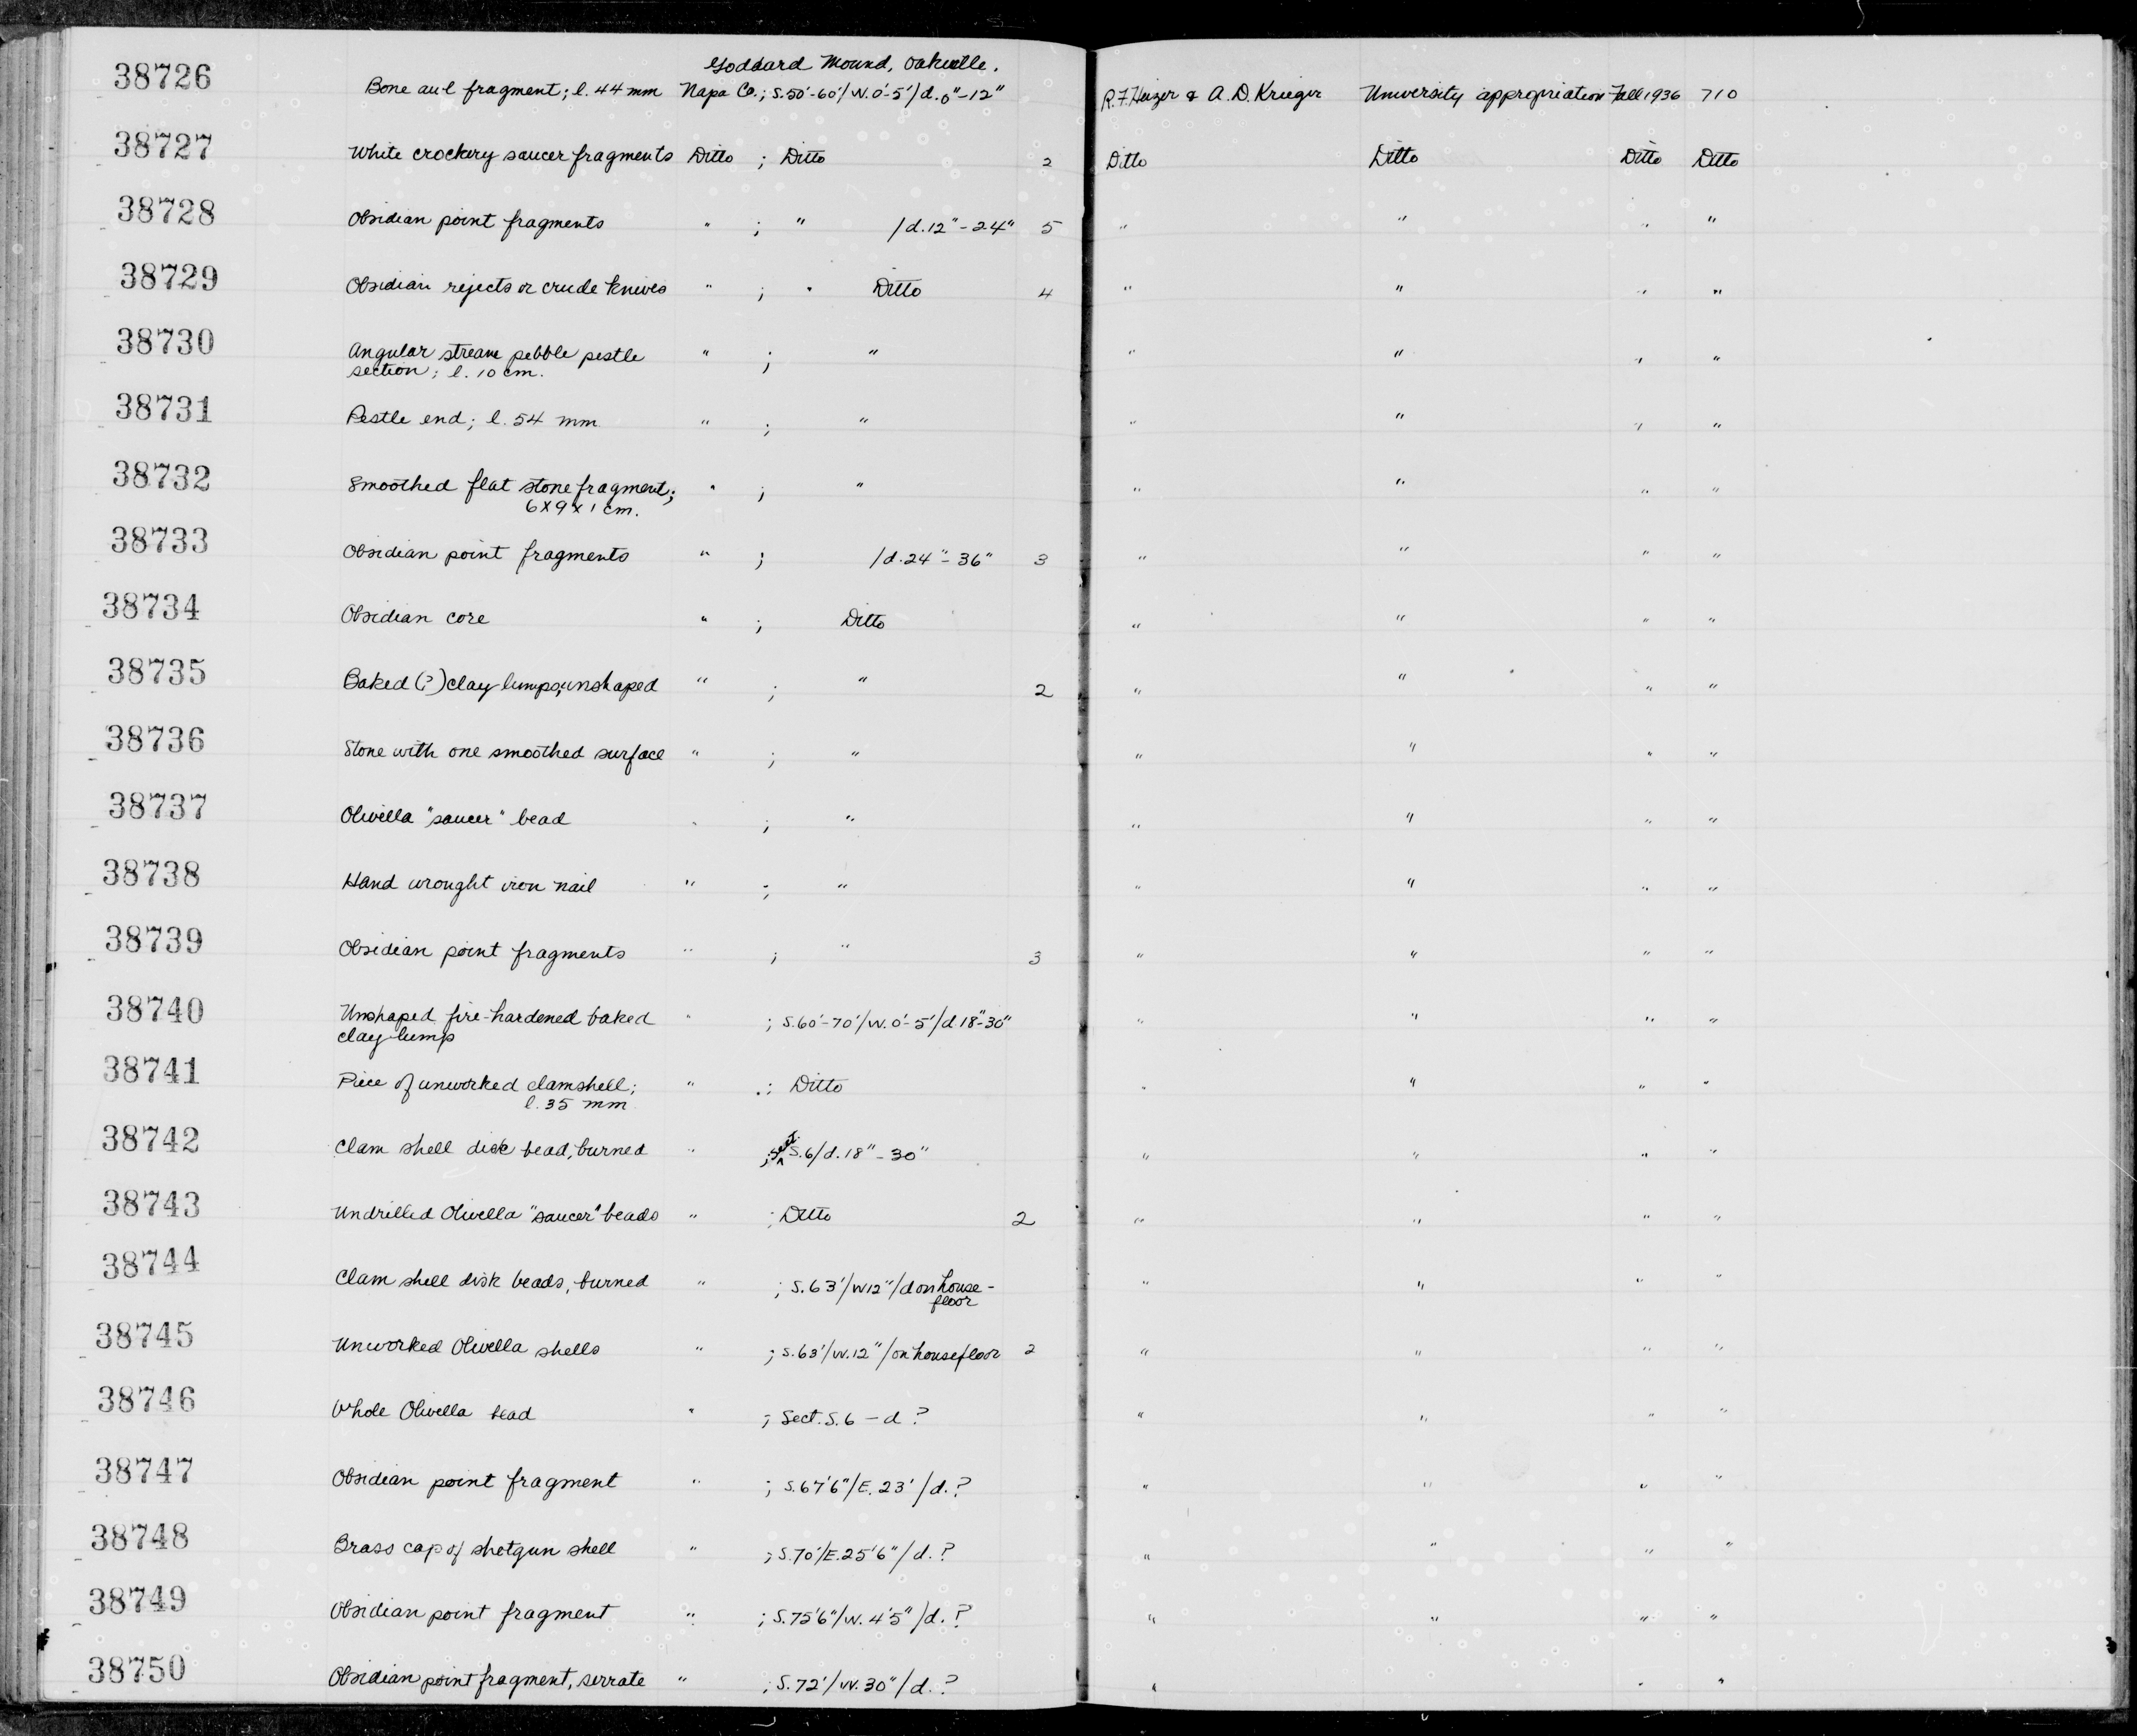 Goddard Mound, Oakville.
38726 Bone awl fragment; l. 44 mm Napa Co.; S.50'-60'/W.0'-5'/d.0"-12" R.F. Heizer & A.D. Krieger University appropriation Fall 1936 710
38727 White crockery saucer fragments Ditto ; Ditto 2 Ditto Ditto Ditto Ditto
38728 Obsidian point fragments " ; " /d.12"-24" 5 " " " "
38729 Obsidian rejects or crude knives " ; " Ditto 4 " " " "
38730 Angular stream pebble pestle " ; " " " " "
section; l. 10 cm.
38731 Pestle end; l. 54 mm " ; " " " " "
38732 Smoothed flat stone fragment; " ; " " " " "
6x9x1 cm.
38733 Obsidian point fragments " ; /d.24"-36" 3 " " " "
38734 Obsidian core " ; Ditto " " " "
38735 Baked (?) clay lumps, unshaped " ; " 2 " " " "
38736 Stone with one smoothed surface " ; " " " " "
38737 Olivella "saucer" bead " ; " " " " "
38738 Hand wrought iron nail " ; " " " " "
38739 Obsidian point fragments " ; " 3 " " " "
38740 Unshaped fire-hardened baked " ; S.60'-70'/W.0'-5'/d.18"-30" " " " "
clay lump
38741 Piece of unworked clamshell; " ; Ditto " " " "
l. 35 mm
38742 Clam shell disk bead, burned " ; Sect. S.6/d.18"-30" " " " "
38743 Undrilled Olivella "saucer" beads " ; Ditto 2 " " " "
38744 Clam shell disk beads, burned " ; S.63'/W12"/d on house- " " " "
floor
38745 Unworked Olivella shells " ; S.63'/W.12"/on housefloor 2 " " " "
38746 Whole Olivella bead " ; Sect. S.6 - d ? " " " "
38747 Obsidian point fragment " ; S.67'6"/E.23'/d.? " " " "
38748 Brass cap of shotgun shell " ; S.70'/E.25'6"/d.? " " " "
38749 Obsidian point fragment " ; S.75'6"/W.4'5"/d.? " " " "
38750 Obsidian point fragment, serrate " ; S.72'/W.30"/d.? " " "